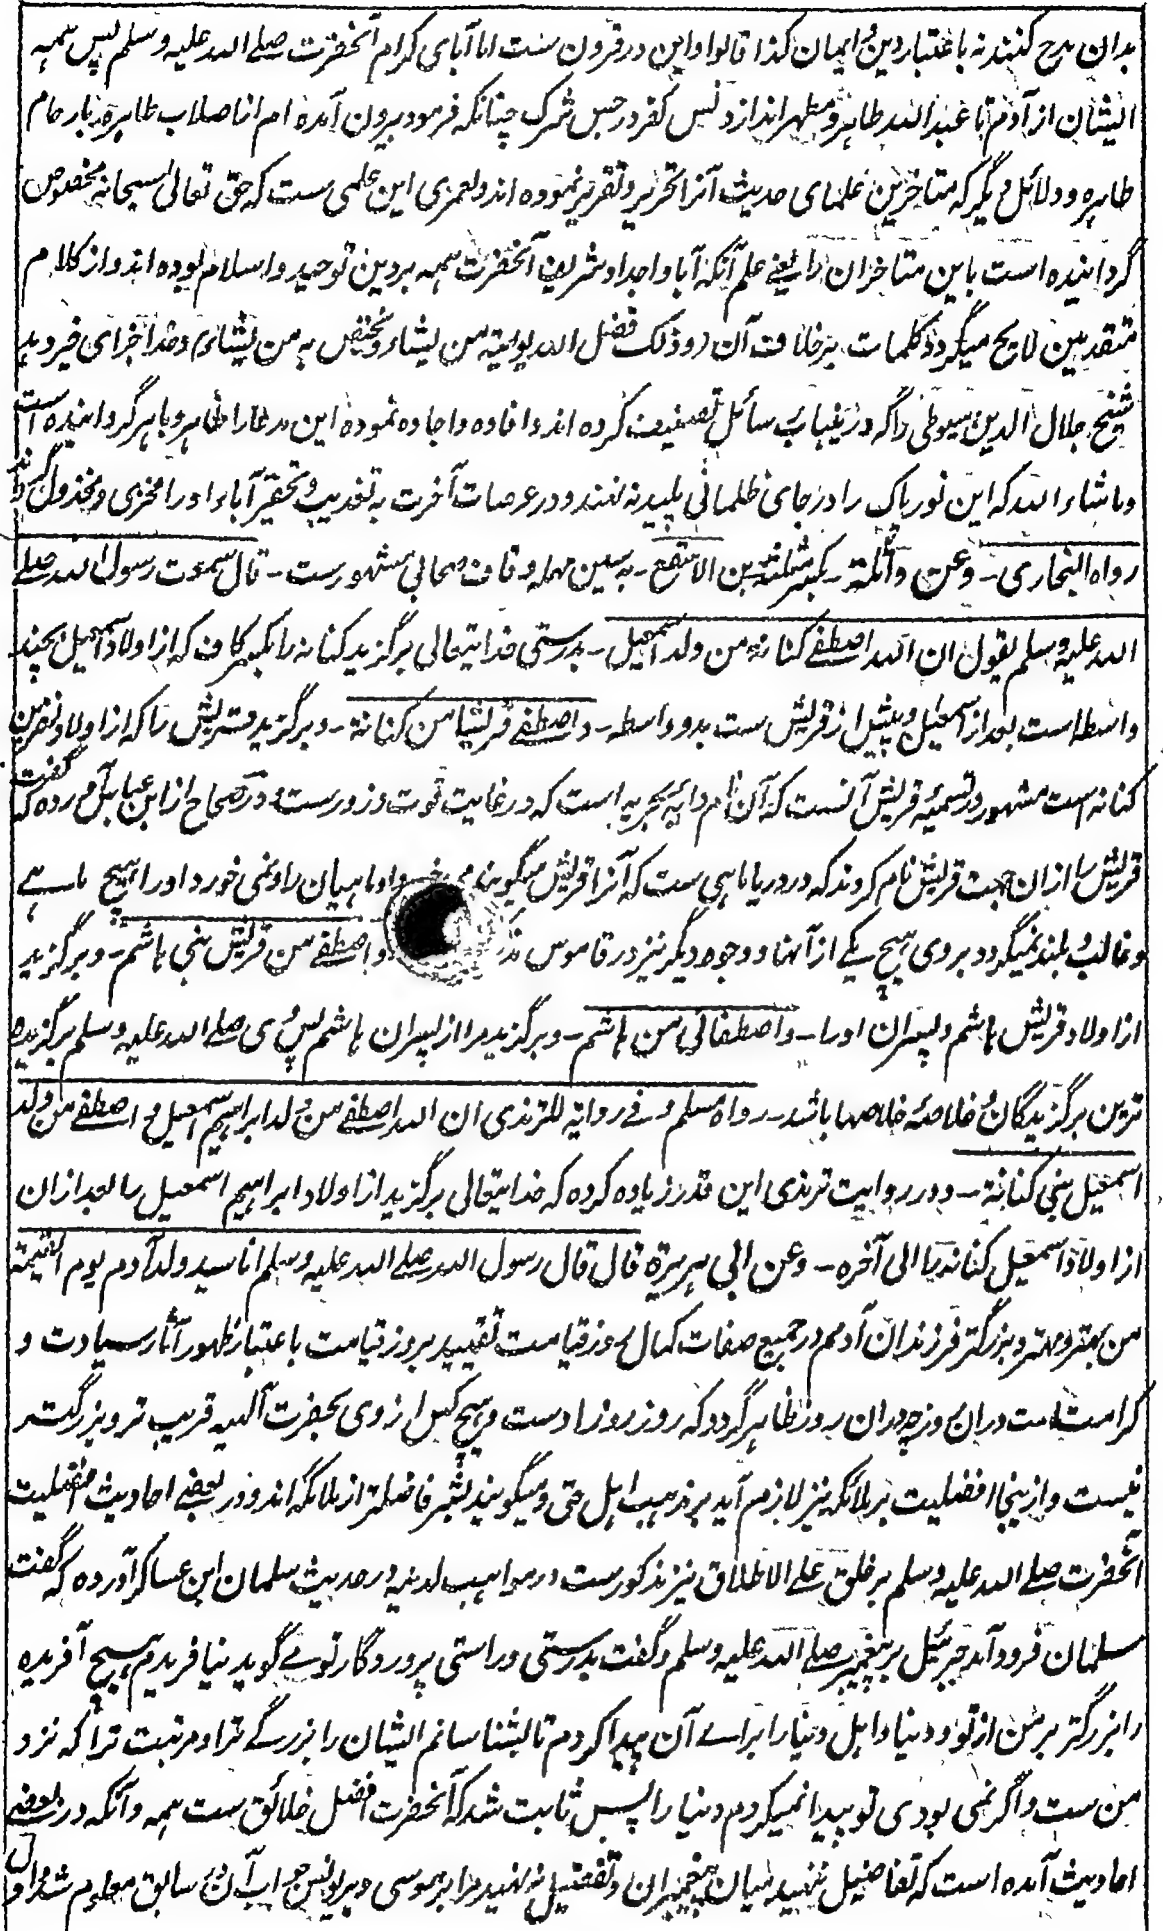 بدان مدح کنند نه باعتبار دین و ایمان کذا قالوا و این در قرون ست اما آبای کرام آنحضرت صلے الله علیه وسلم پس همه
ایشان از آدم تا عبد الله طاهر و مطهر اند از دنس کفر و رجس شرک چنانکه فرمود بیرون آمده ام از اصلاب طاهره بارحام
طاهره و دلائل دیگر که متاخرین علمای حدیث آنرا تحریر و تقریر نموده اند و لعمری این علمی ست که حق تعالی سبحانه مخصوص
گردانیده است باین متاخران را یعنے علم آنکه آبا و اجداد شریف آنحضرت همه بر دین توحید و اسلام بوده اند و از کلام
متقدمین لایح میگردد کلمات بر خلاف آن و ذلک فضل الله یوتیه من یشاء و یختص به من یشاء و خدا جزای خیر دهد
شیخ جلال الدین سیوطی را که درینباب رسائل تصنیف کرده اند و افاده و اجاده نموده این مدعا را ظاهر و باهر گردانیده است
و حاشاء الله که این نور پاک را در جای ظلمانی پلید نهند و در عرصات آخرت به تعذیب و تحقیر آباء او را مخزی و مخذول گردانند
رواه البخاری - وعن واثلة - بکسر مثلثه بن الاسقع - به سین مهمله و قاف صحابی مشهورست - قال سمعت رسول الله صلے
الله علیه وسلم یقول ان الله اصطفے کنانة من ولد اسمعیل - بدرستی خدایتعالی برگزید کنانه را بکسر کاف که از اولاد اسمعیل بچند
واسطه است بعد از اسمعیل و پیش از قریش ست بدو واسطه - و اصطفے قریشا من کنانة - و برگزید قریش را که از اولاد نضر بن
کنانه است مشهور در تسمیهٔ قریش آنست که آن نام دابهٔ بحریه است که در غایت قوت و زورست و در صحاح از ابن عباس آورده که گفت
قریش را از ان جهت قریش نام کردند که در دریا ماهی ست که آنرا قریش میگویند می خورد او ماهیان را و نمی خورد او را هیچ ماهے
و غالب و بلند نمیگردد بر وی هیچ یکے از آنها و وجوه دیگر نیز در قاموس و اصطفے من قریش بنی هاشم - و برگزید
از اولاد قریش هاشم و پسران او را - و اصطفانی من هاشم - و برگزید مرا از پسران هاشم پس وی صلے الله علیه وسلم برگزیده
ترین برگزیدگان و خلاصهٔ خلاصها باشد - رواه مسلم و فے روایة للترمذی ان الله اصطفے من ولد ابراهیم اسمعیل و اصطفے من ولد
اسمعیل بنی کنانة - و در روایت ترمذی این قدر زیاده کرده که خدایتعالی برگزید از اولاد ابراهیم اسمعیل را بعد از ان
از اولاد اسمعیل کنانه را الی آخره - وعن ابی هریرة قال قال رسول الله صلے الله علیه وسلم انا سید ولد آدم یوم القیمة
من بهتر و مهتر و بزرگتر فرزندان آدمم در جمیع صفات کمال بروز قیامت تقیید بروز قیامت باعتبار ظهور آثار سیادت و
کرامت ست دران روز چه دران روز ظاهر گردد که روز روز اوست و هیچ کس از وی بحضرت آلهیه قریب تر و بزرگتر
نیست و ازینجا افضلیت بر ملائکه نیز لازم آید بر مذهب اهل حق و میگویند بشر فاضلتر از ملائکه اند و در بعضے احادیث افضلیت
آنحضرت صلے الله علیه وسلم بر خلق علے الاطلاق نیز مذکورست در مواهب لدنیه در حدیث سلمان ابن عساکر آورده که گفت
سلمان فرود آمد جبرئیل بر پیغمبر صلے الله علیه وسلم و گفت بدرستی و راستی پروردگار تو مے گوید نیافریدم هیچ آفریده
را بزرگتر بر من از تو و دنیا و اهل دنیا را براے آن پیدا کردم تا بشناسانم ایشان را بزرگے ترا و مرتبت ترا که نزد
من ست و اگر نمی بودی تو پیدا نمیکردم دنیا را پس ثابت شد که آنحضرت افضل خلائق ست همه و آنکه در بعضے
احادیث آمده است که تفاضیل ننهید میان پیغمبران و تفضیل ننهید مرا بر موسی و بر یونس جواب آن در سابق معلوم شد و اول